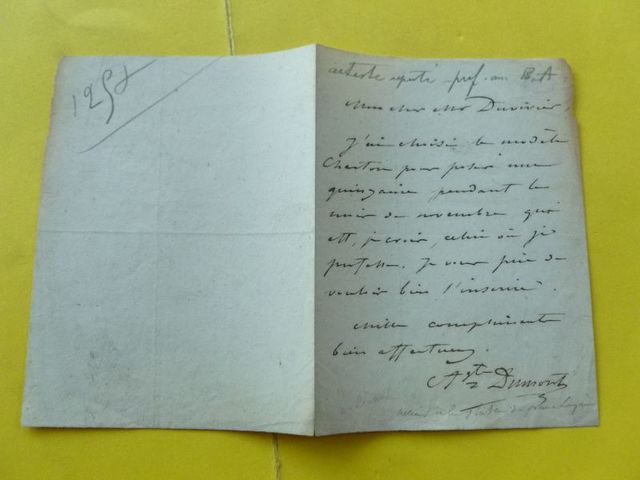 1257
artiste réputé prof. aux B-A
Mon cher Mr Duvivier,
J'ai choisi le modèle
Charton pour poser une
quinzaine pendant le
mois de novembre qui
est, je crois, celui où je
professe. Je vous prie de
vouloir bien l'inscrire.
Mille compliments
bien affectueux.
Agte Dumont
de la